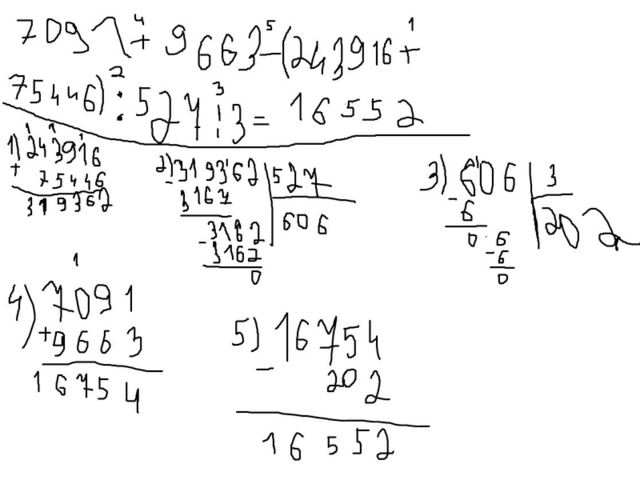 7091 + 9663 - (243916 +
75446) : 527 : 3 = 16552
1) 243916
+ 75446
319362
2) 319362 527
- 3162 606
3162
- 3162
0
3) 606 3
- 6 202
0 6
- 6
0
4) 7091
+ 9663
16754
5) 16754
- 202
16552